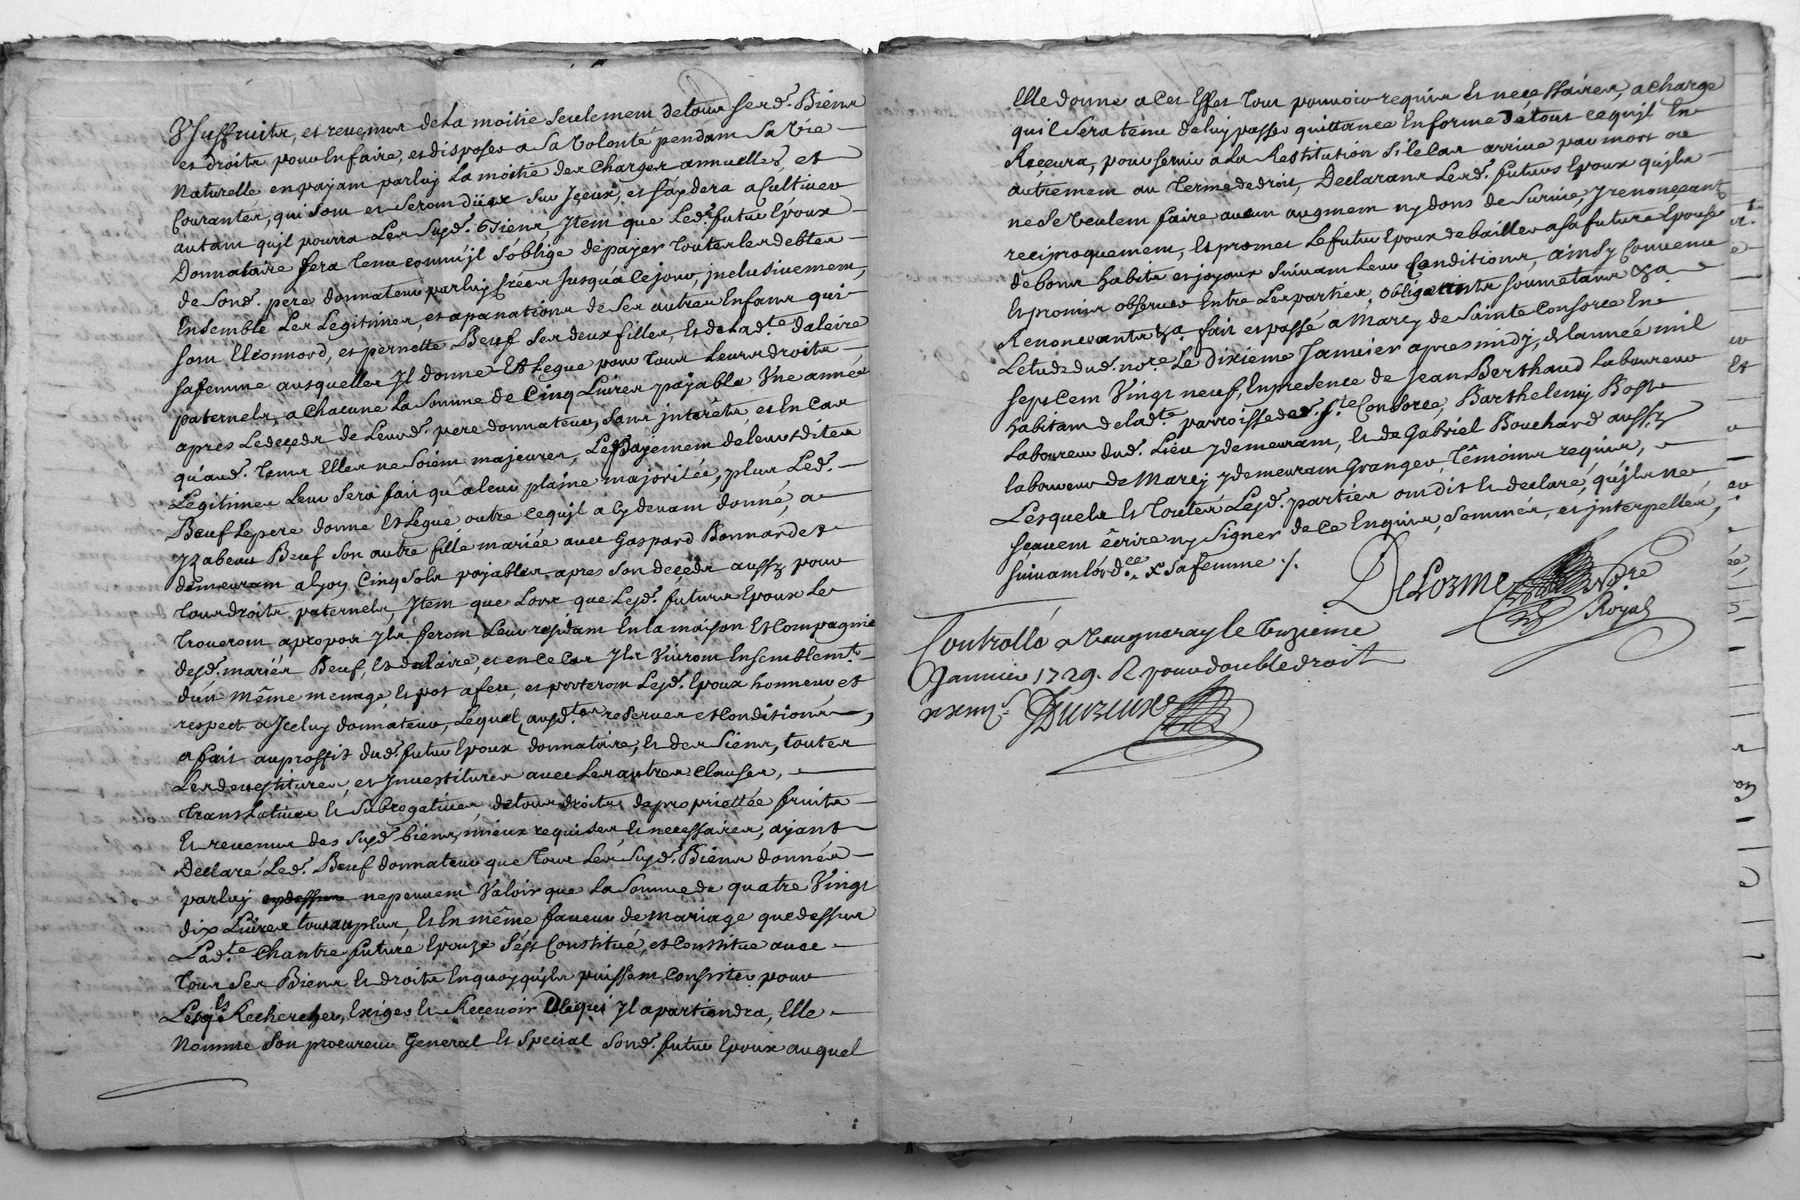 Usuffruits, et revenus de la moitié seulement de tous sesd. Biens
et droits pour En faire, et disposer a Sa Volonté pendant Sa Vie
Naturelle en payant par luy La moitié des Charges annuelles et
Courantes, qui Sont et Seront düex Sur Jçeux, et faydera a Cultiver
autant qu'jl pourra Les Susd. Biens, Jtem que Led. futur Epoux
Donnataire Sera Tenu comm'jl s'oblige de payer Toutes les debtes
de Sond. pere donnateur par luy Créés Jusqu'à Ce jour, jnclusivement,
Ensemble Les Legitimes, et apanations de Ses autres Enfans qui
Sont Eléonnord, et pernette Bœuf Ses deux filles, Et de Lad.te dalaire
Sa femme ausquelles Jl donne Et Legue pour Tous Leurs droits
paternels, a Chacune La Somme de Cinq Livres payable Une année
apres Le deçeds de Leurd. pere donnateur, Sans jnterêts et En Cas
qu'aud. Tems Elles ne Soient majeures, Le payement de leursdites
Legitimes Leur Sera fait qu'a leur plaine majoritée, plus Led.
Bœuf Le pere donne Et Legue outre Ce qu'jl a Cy devant donné, a
Yzabeau Bœuf Son autre fille mariée avec Gaspard Bonnardet
demeurant a Lyon Cinq Sols payables apres Son deçeds aussy pour
Tous droits paternels, Jtem que Lors que Lesd. futurs Epoux Le
Trouveront a propos Jls feront Leur residant En la maison Et Compagnie
desd. mariés Bœuf, Et dalaire, et en Ce Cas Jls Vivront Ensemblem.t
d'un même menage, Et pot a feu, et porteront Lesd. Epoux honneur et
respect a Jceluy donnateur, Lequel ausd.tes reserves et Conditions,
a fait au proffit dud. futur Epoux donnataire, Et des Siens, toutes
Les devestitures, et Jnvestitures avec Les autres Clauses,
Translatives Et Subrogatives, de tous droits de propriettée fruits
Et revenus des Susd. biens, mieux requises Et necessaires, ayant
Declaré Led. Bœuf donnateur que Tous Les Susd. Biens donnés
par luy cydessus ne peuvent Valoir que La Somme de quatre Vingt
dix Livres tout au plus, Et En même faveur de mariage que dessus
Lad.te Chantre future Epouze S'est Constitué, et Constitue avec
Tous Ses Biens Et droits En quoy qu'jls puissent Consister pour
Lesqls Rechercher, Exiger Et Reçevoir De qui Jl apartiendra, Elle
Nomme Son procureur General Et Special Sond. futur Epoux auquel
Elle donne a Cet Effet Tout pouvoir requis Et neceSsaires, a Charge
qu'il Sera tenu de luy passer quittance En forme de tout Ce qu'jl En
Recevra, pour Servir a La Restitution Si le Cas arrive par mort ou
autrement au Terme de droit, Declarans Lesd. futurs Epoux qu'jls
ne Se Veulent faire aucun augment ny dons de Survie, Y renonceant
reciproquement, Et promet Le futur Epoux de bailler a Sa future Epouse
de bons habits et joyaux Suivant Leur Conditions, ainsy Convenu
Et promis observer Entre Les parties, obligeants soumettans &a
Renonceants &a. fait et passé a Marcy de Sainte Consorce En
L'etude dud. no.re Le dixieme Janvier apres midy, de L'année mil
Sept Cent Vingt neuf, En presence de Jean Berthaud Laboureur
habitant de lad.te parroisse de S.te Consorce, Barthelemy Bost
Laboureur dud. Lieu y demeurant, Et de Gabriel Bouchard aussy
laboureur de Marcy y demeurant Granger, Témoins requis,
Lesquels Et Toutes Lesd. parties ont dit Et declaré, qu'jls ne
Sçavent écrire ny Signer de Ce Enquis, Sommés, et jnterpellés,
Suivant L'ord.ce x Sa femme ./.
DeLorme N.re
Royal
Controllé a Vaugneray le Onzieme
Janvier 1729. R pour double droit